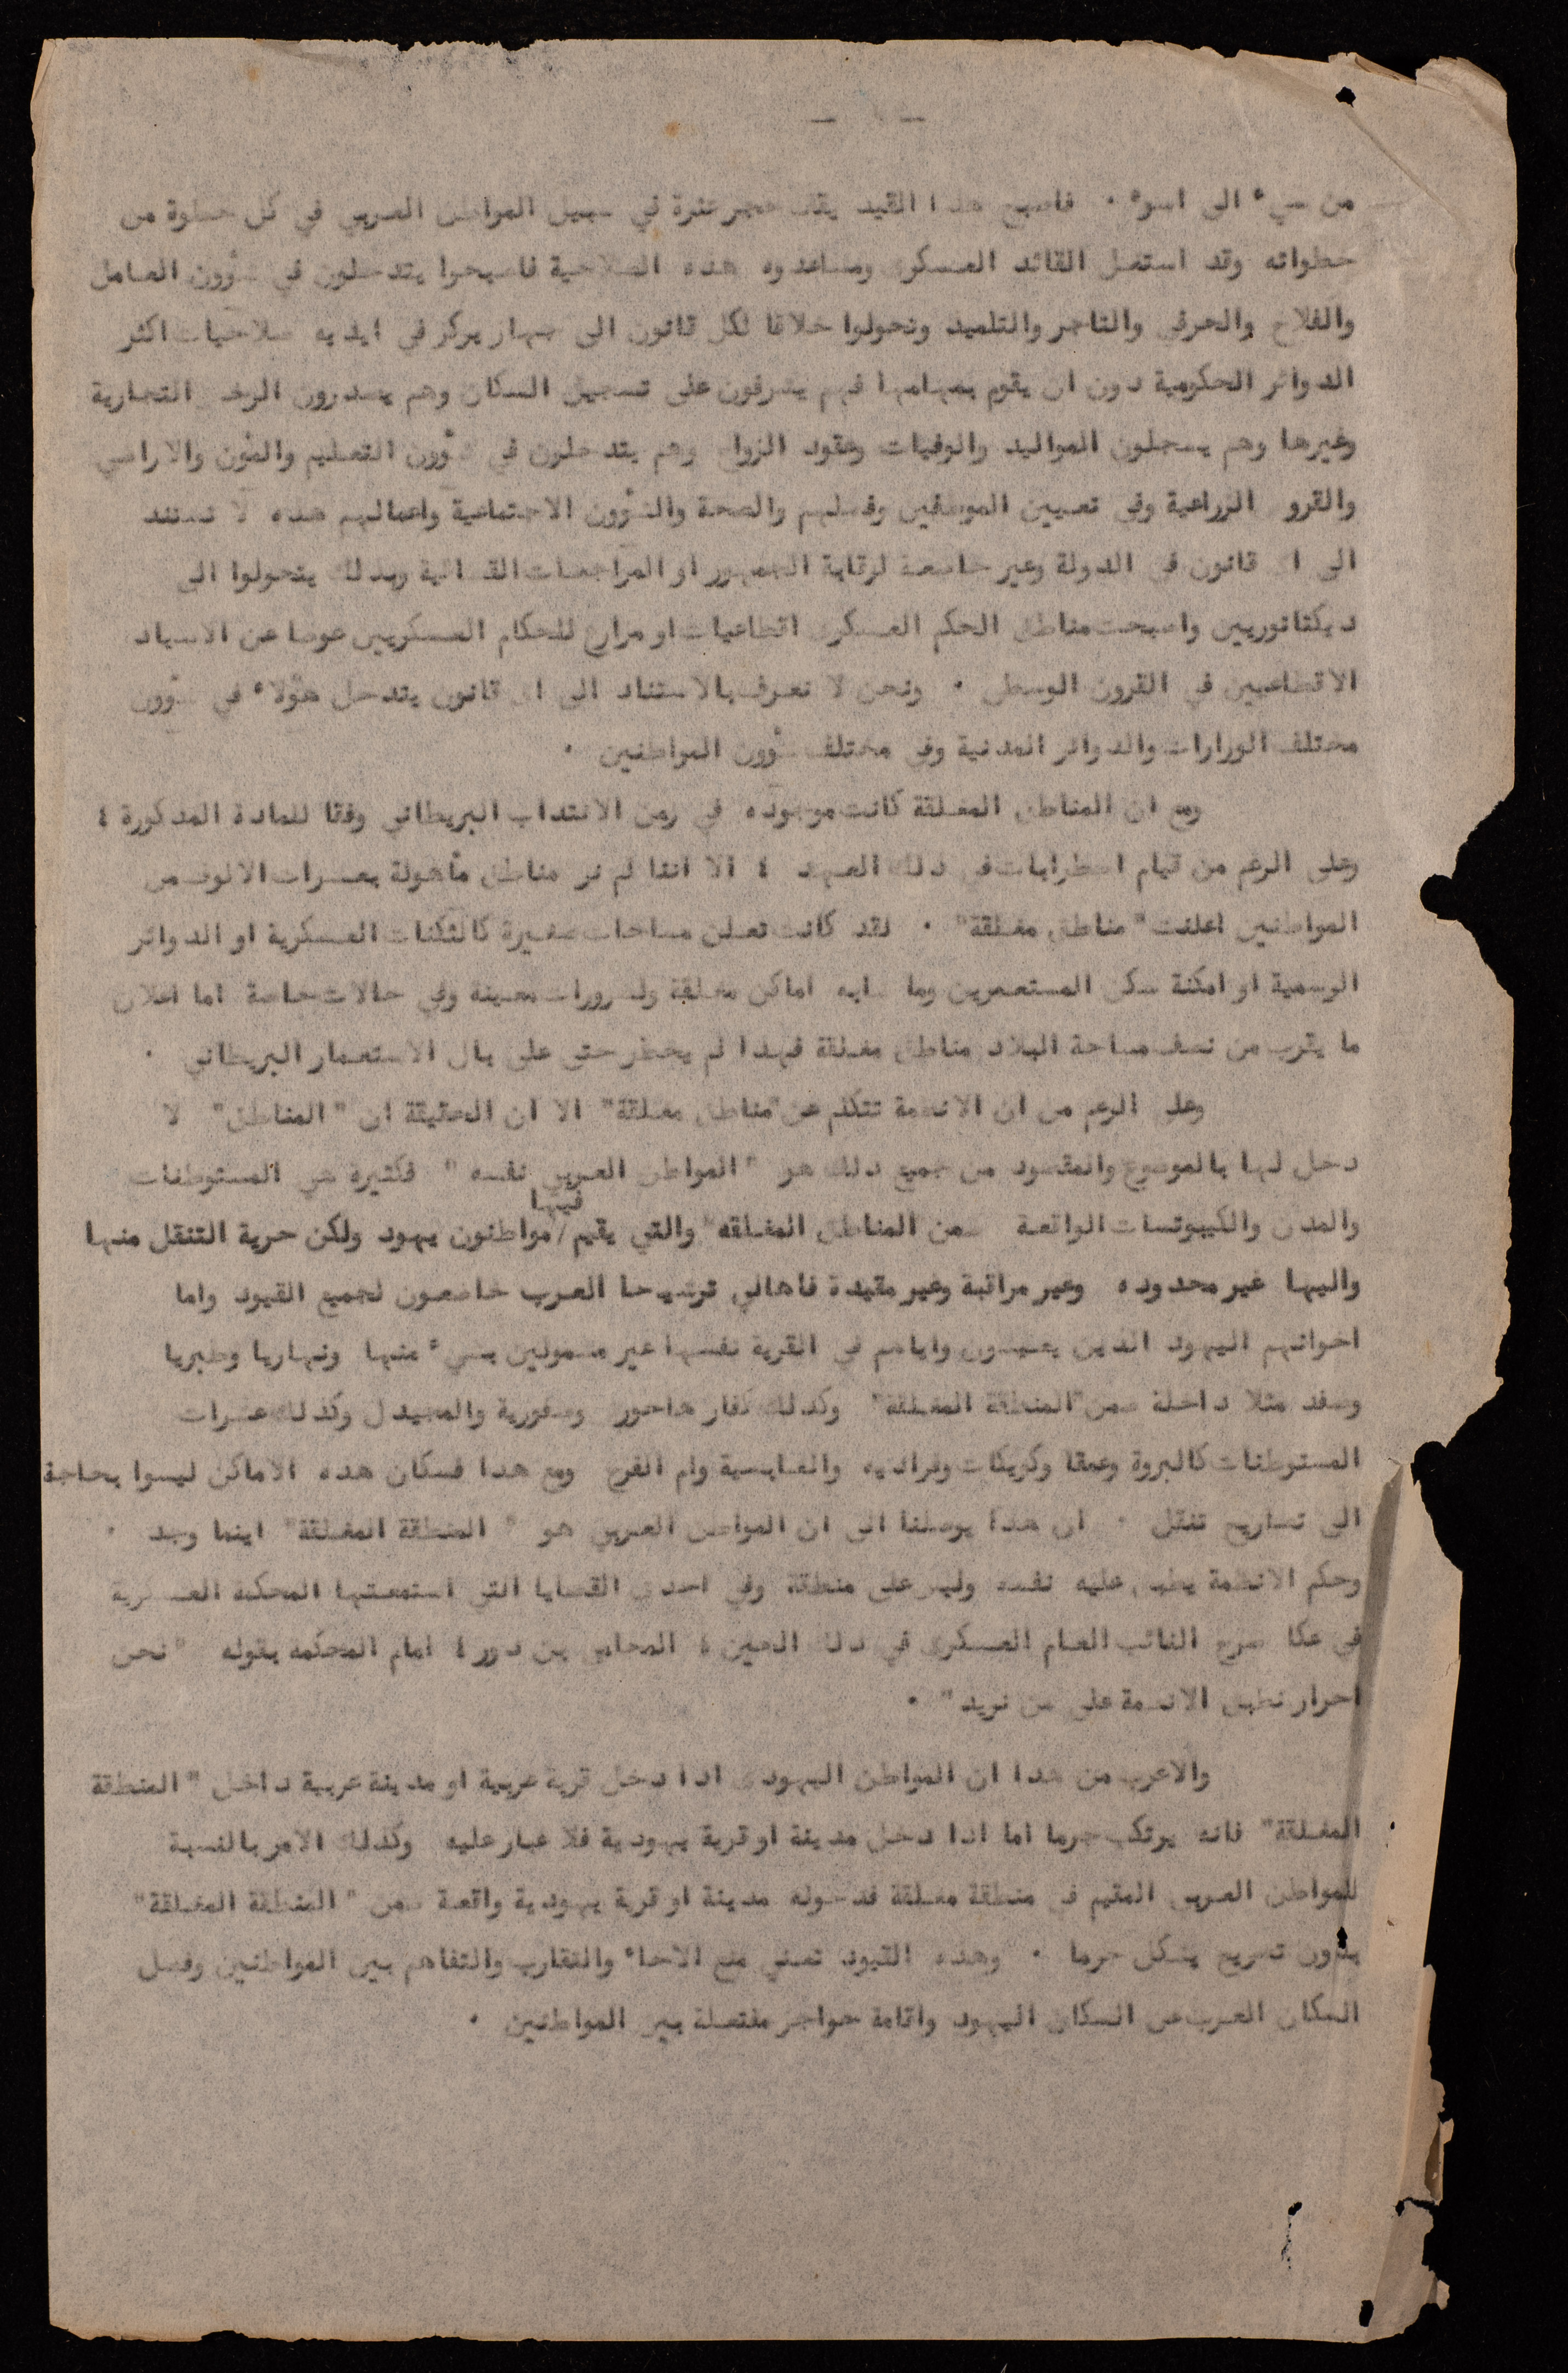 من سيء الى اسوء . فاصبح هذا القيد يقف حجر عثرة في سبيل المواطن العربي في كل خطوة من
خطواته وقد استغل القائد العسكرى ومساعدوه هذه الصلاحية فاصبحوا يتدخلون في شؤون العامل
والفلاح والحرفي والتاجر والتلميذ وتحولوا خلافا لكل قانون الى جهاز يركز في ايديه صلاحيات اكثر
الدوائر الحكومية دون ان يقوم بمهامها فهم يشرفون على تسجيل السكان وهم يصدرون الرخص التجارية
وغيرها وهم يسجلون المواليد والوفيات وعقود الزواج وهم يتدخلون في شؤون التعليم والمؤن والاراضي
والقروض الزراعية وفي تعيين الموظفين وفصلهم والصحة والشؤون الاجتماعية واعمالهم هذه لا تستند
الى اى قانون في الدولة وغير خاضعة لرقابة الجمهور او المراجعات القضائية وبذلك يتحولوا الى
ديكتاتوريين واصبحت مناطق الحكم العسكرى اقطاعيات او مزارع للحكام العسكريين عوضا عن الاسياد
الاقطاعيين في القرون الوسطى . ونحن لا نعرف بالاستناد الى اى قانون يتدخل هؤلاء في شؤون
مختلف الوزارات والدوائر المدنية وفي مختلف شؤون المواطنين .
ومع ان المناطق المغلقة كانت موجوده في زمن الانتداب البريطاني وفقا للمادة المذكورة ،
وعلى الرغم من قيام اضطرابات في ذلك العهد ، الا اننا لم نر مناطق مأهولة بعشرات الالوف من
المواطنين اعلنت "مناطق مغلقة" . لقد كانت تعلن مساحات صغيرة كالثكنات العسكرية او الدوائر
الرسمية او امكنة سكن المستعمرين وما شابه اماكن مغلقة ولضرورات معينة وفي حالات خاصة اما اعلان
ما يقرب من نصف مساحة البلاد مناطق مغلقة فهذا لم يخطر حتى على بال الاستعمار البريطاني .
وعلى الرغم من ان الانظمة تتكلم عن "مناطق مغلقة" الا ان الحقيقة ان "المناطق" لا
دخل لها بالموضوع والمقصود من جميع ذلك هو "المواطن العربي نفسه" فكثيرة هي المستوطنات
والمدن والكيبوتسات الواقعة ضمن "المناطق المغلقه" والتي يقيم / فيها مواطنون يهود ولكن حرية التنقل منها
واليها غير محدوده وغير مراقبة وغير مقيدة فاهالي ترشيحا العرب خاضعون لجميع القيود واما
اخوانهم اليهود الذين يعيشون واياهم في القرية نفسها غير مشمولين بشيء منها ونهاريا وطبريا
وصفد مثلا داخلة ضمن "المنطقة المغلقة" وكذلك كفار هاحورش وصفورية والمجيدل وكذلك عشرات
المستوطنات كالبروة وعمقا وكويكات وفراديه والغابسية وام الفرج ومع هذا فسكان هذه الاماكن ليسوا بحاجة
الى تصاريح تنقل . ان هذا يوصلنا الى ان المواطن العربي هو "المنطقة المغلقة" اينما وجد .
وحكم الانظمة يطبق عليه نفسه وليس على منطقة وفي احدى القضايا التي استمعتها المحكمة العسكرية
في عكا صرح النائب العام العسكرى في ذلك الحين ، المحامي بن دور ، امام المحكمه بقوله "نحن
احرار نطبق الانظمة على من نريد" .
والاغرب من هذا ان المواطن اليهودى اذا دخل قرية عربية او مدينة عربية داخل "المنطقة
المغلقة" فانه يرتكب جرما اما اذا دخل مدينة او قرية يهودية فلا غبار عليه وكذلك الامر بالنسبة
للمواطن العربي المقيم في منطقة مغلقة فدخوله مدينة او قرية يهودية واقعة ضمن "المنطقة المغلقة"
بدون تصريح يشكل جرما . وهذه القيود تعني منع الاخاء والتقارب والتفاهم بين المواطنين وفصل
السكان العرب عن السكان اليهود واقامة حواجز مفتعلة بين المواطنين .